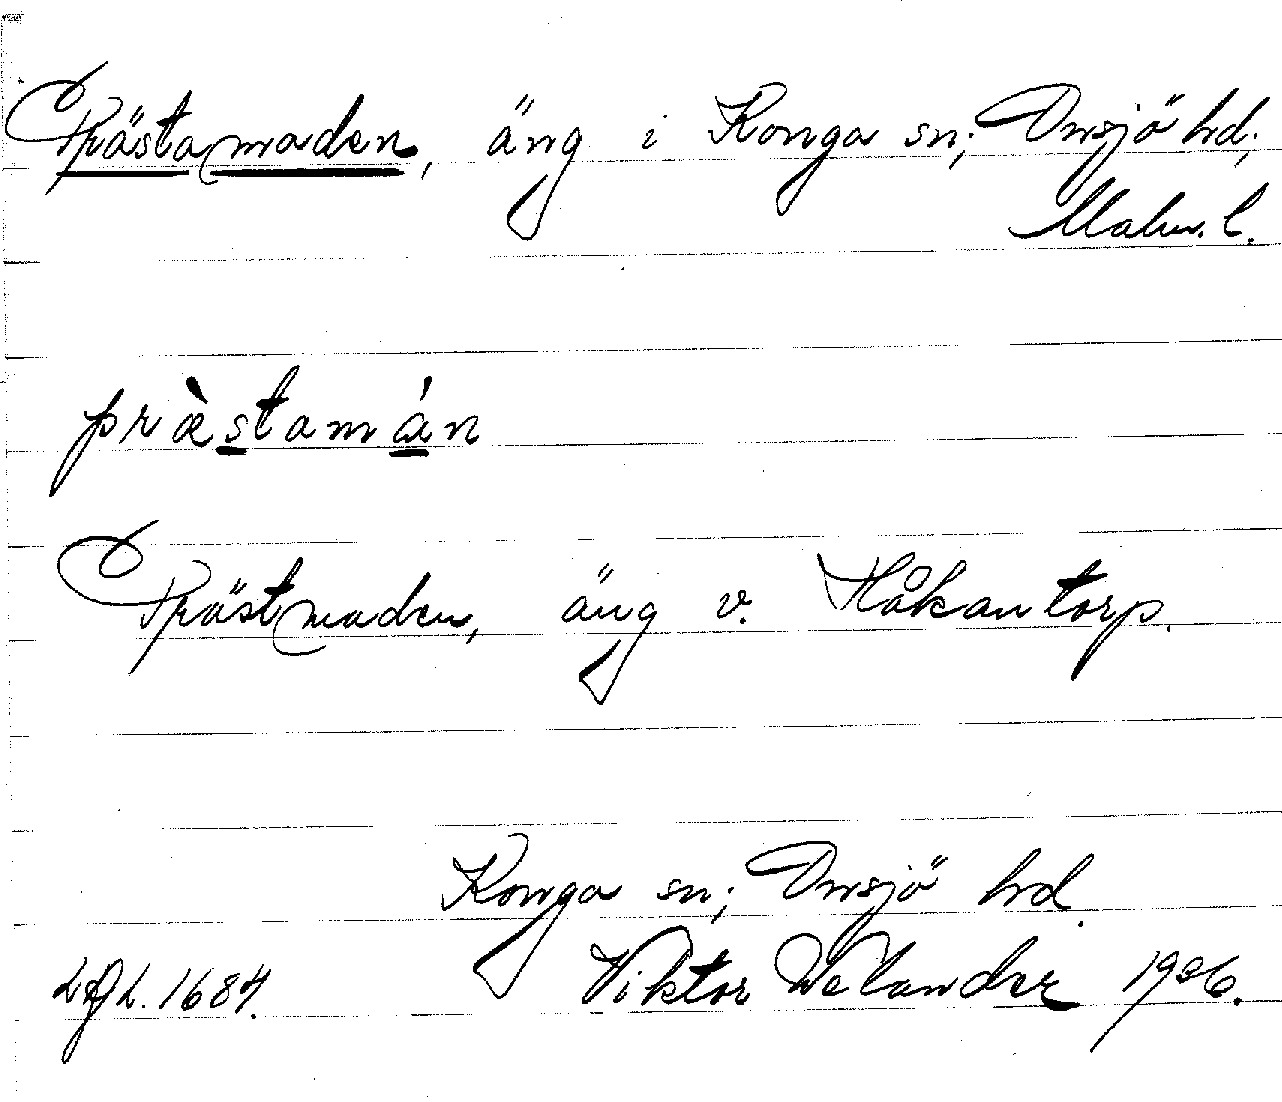 Prästamaden, äng i Konga sn; Onsjö hd,
Malm. l.
præ̀stamán
Prästmaden, äng v. Håkantorp.
Konga sn; Onsjö hd.
1684. Viktor Welander 1926.